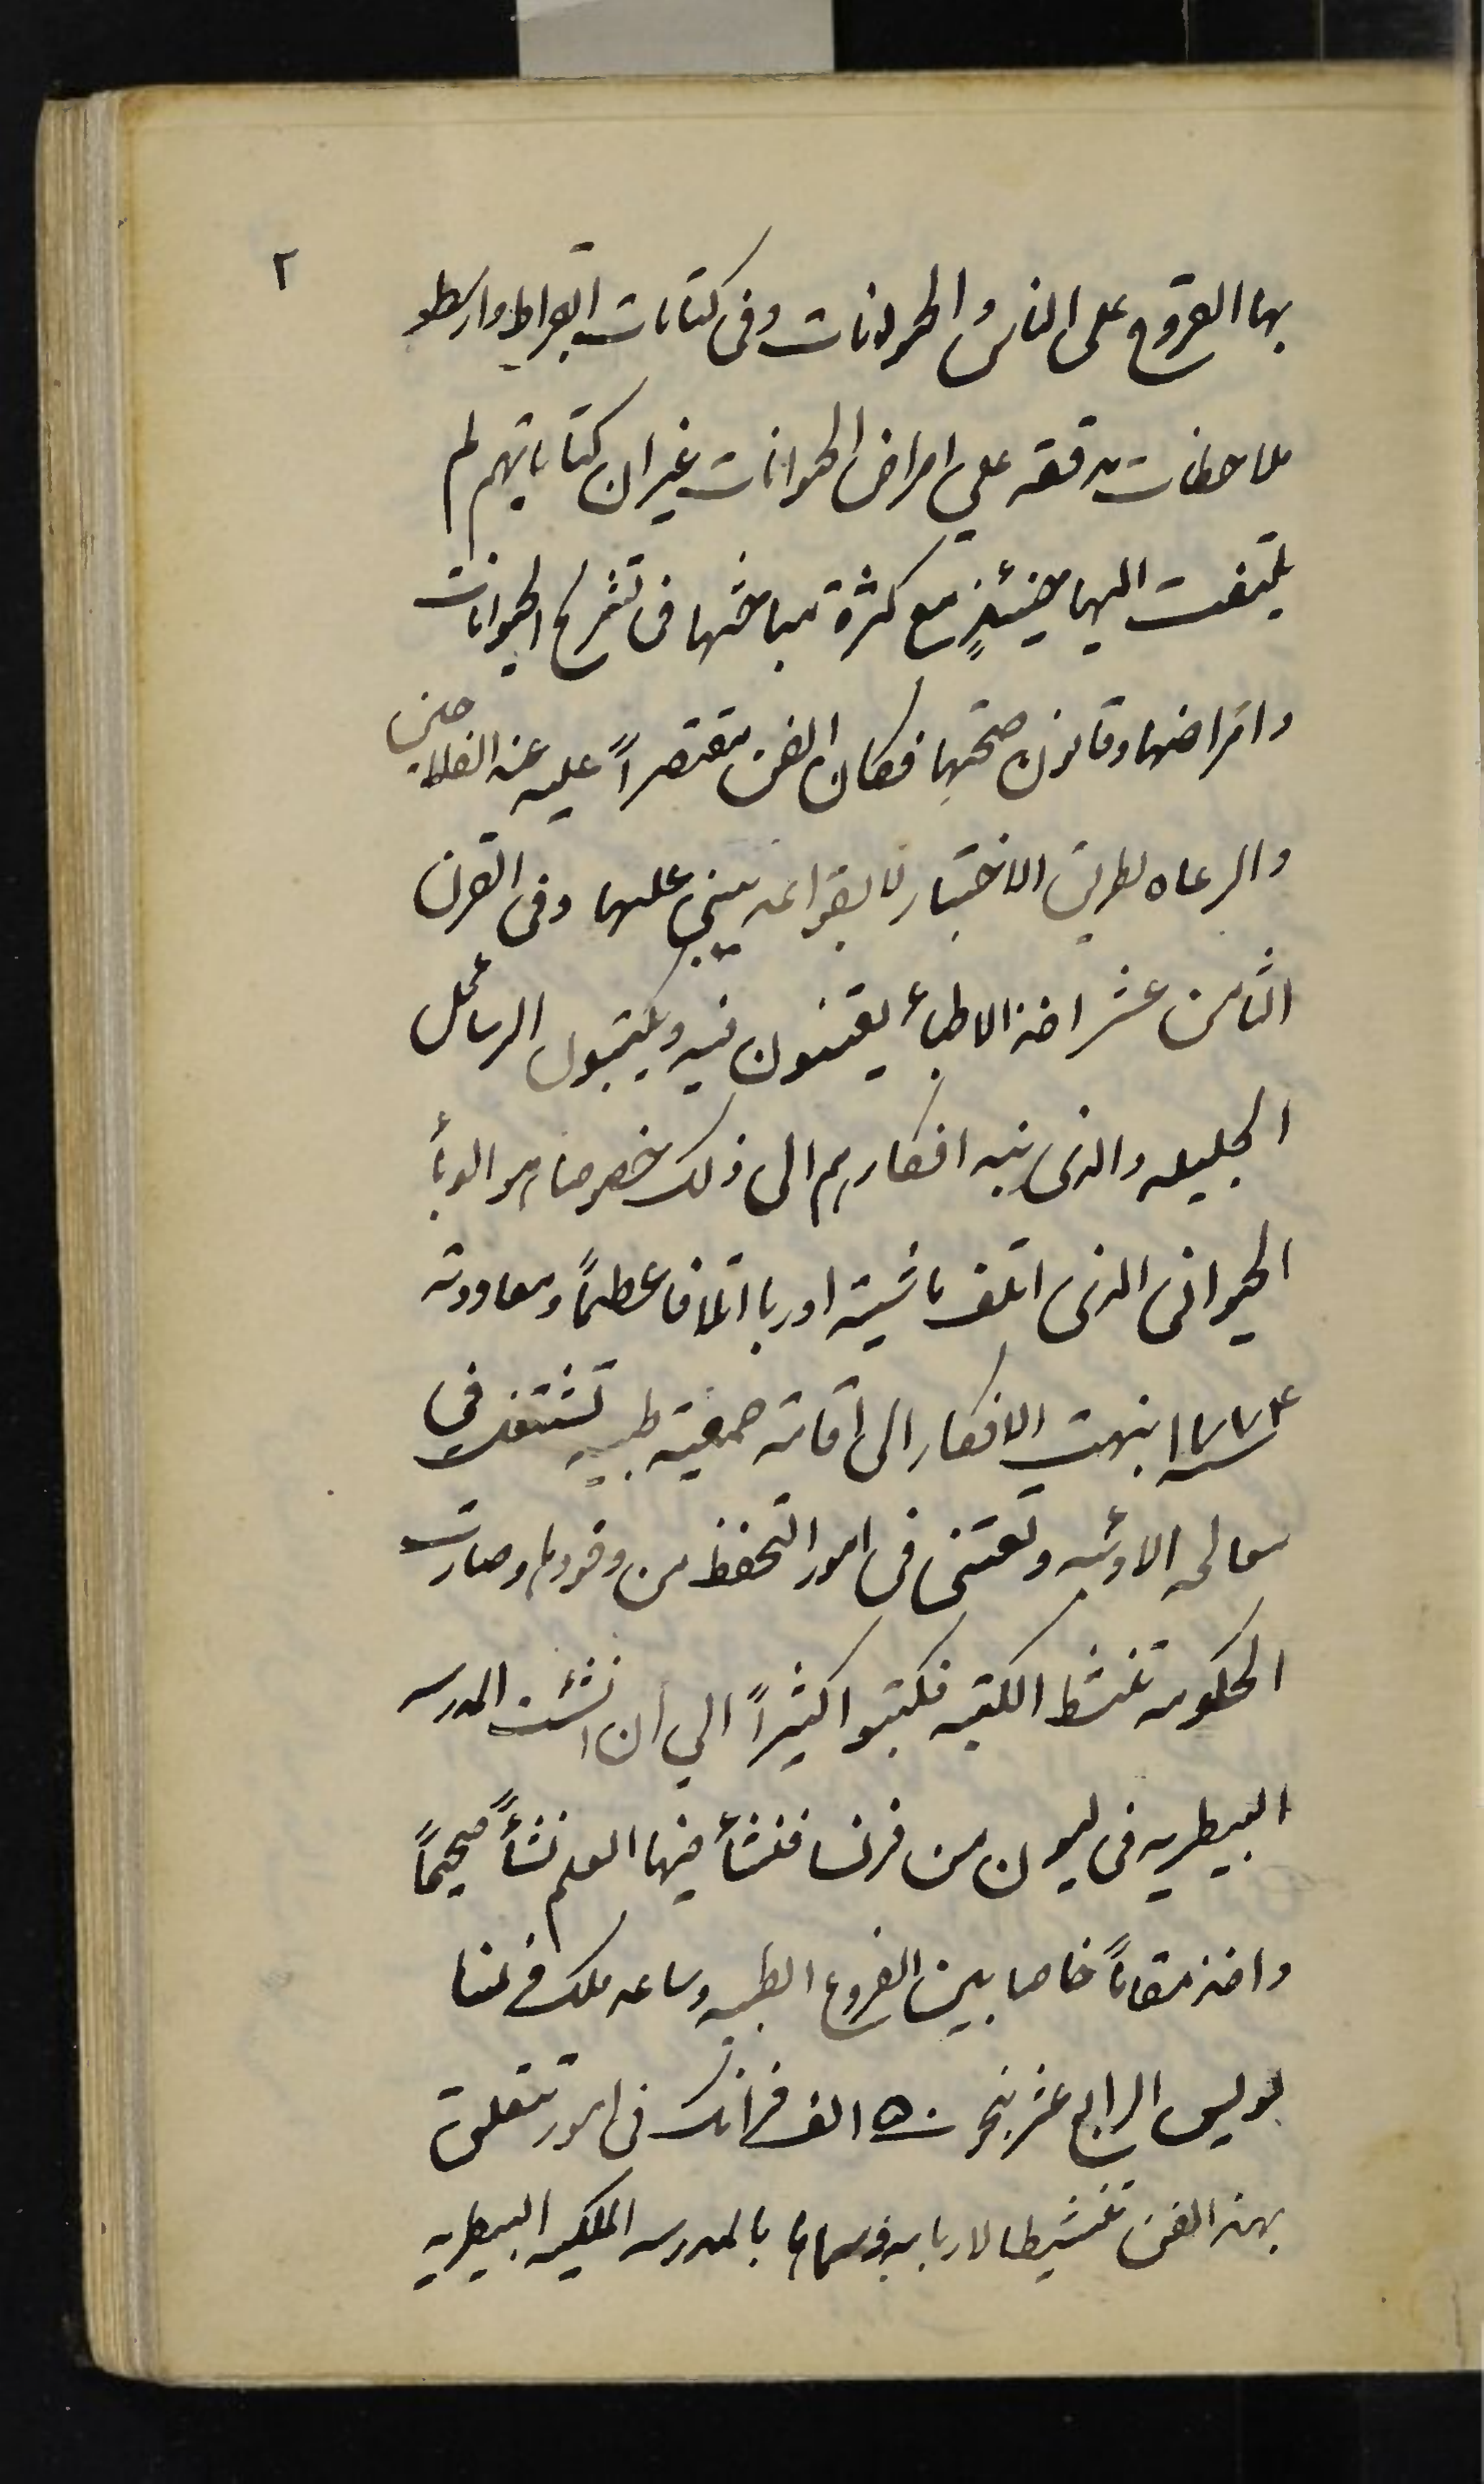 ٢
بها القروح على الناس والحيوانات وفى كتابات ابقراط وارسطو
ملاحظات مدققه علي امراض الحيوانات غير ان كتاباتهم لم
يلتفت اليها حينئذٍ مع كثرة مباحثها فى تشريح الحيوانات
وامراضها وقانون صحتها فكان الفن مقتصراً عليه عند الفلاحين
والرعاه بطريق الاختبار لا بقواعد يبنى عليها وفى القرن
الثامن عشر اخذ الاطباء يعتنون فيه ويكتبون الرسائل
الجليله والذى نبه افكارهم الى ذلك خصوصا هو الوبأ
الحيوانى الذى اتلف ماشية اوربا اتلافا عظيماً ومعاودته
سنة ١٧٧٤ نبهت الافكار الى اقامة جمعية طبيه تشتغل في
معالجه الاوبئه وتعتنى فى امور التحفظ من وفودها وصارت
الحكومه تنشط الكتبه فكتبوا كثيراً الي ان انشئت المدرسه
البيطريه فى ليون من فرنسا فنشأ فيها العلم نشأً صحيحاً
واخذ مقاماً خاصا بين الفروع الطبيه وساعد ملك فرنسا
لويس الرابع عشر بنحو ٥٠ الف فرانك فى امور تتعلق
بهذا الفن تنشيطا لاربابه وسماها بالمدرسه الملكيه البيطريه